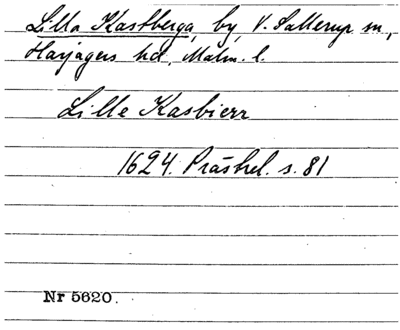 Lilla Kastberga, by, V. Sallerup sn,
Harjagers hd, Malm. l.
Lille Kasbierr
1624. Prästrel. s. 81
Nr 5620.